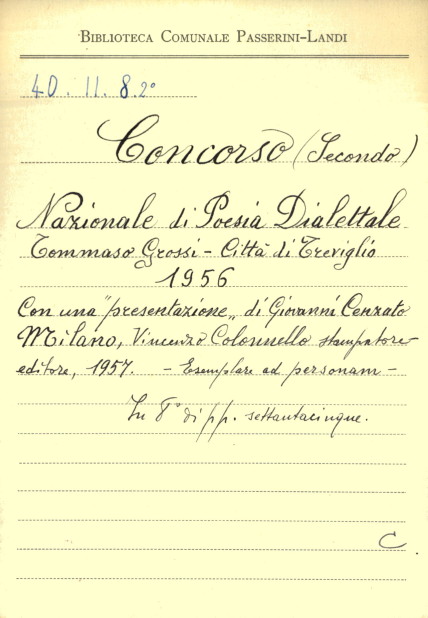 Biblioteca Comunale Passerini-Landi
40. 11. 8. 2°
Concorso (Secondo)
Nazionale di Poesia Dialettale
Tommaso Grossi - Città di Treviglio
1956
Con una "presentazione„ di Giovanni Cenzato
Milano, Vincenzo Colonnello stampatore
editore, 1957. - Esemplare ad personam -
In 8° di pp. settantacinque.
C